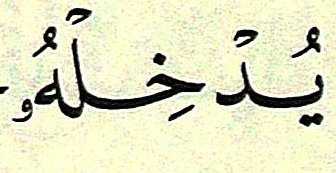 يُدْخِلْهُۥ